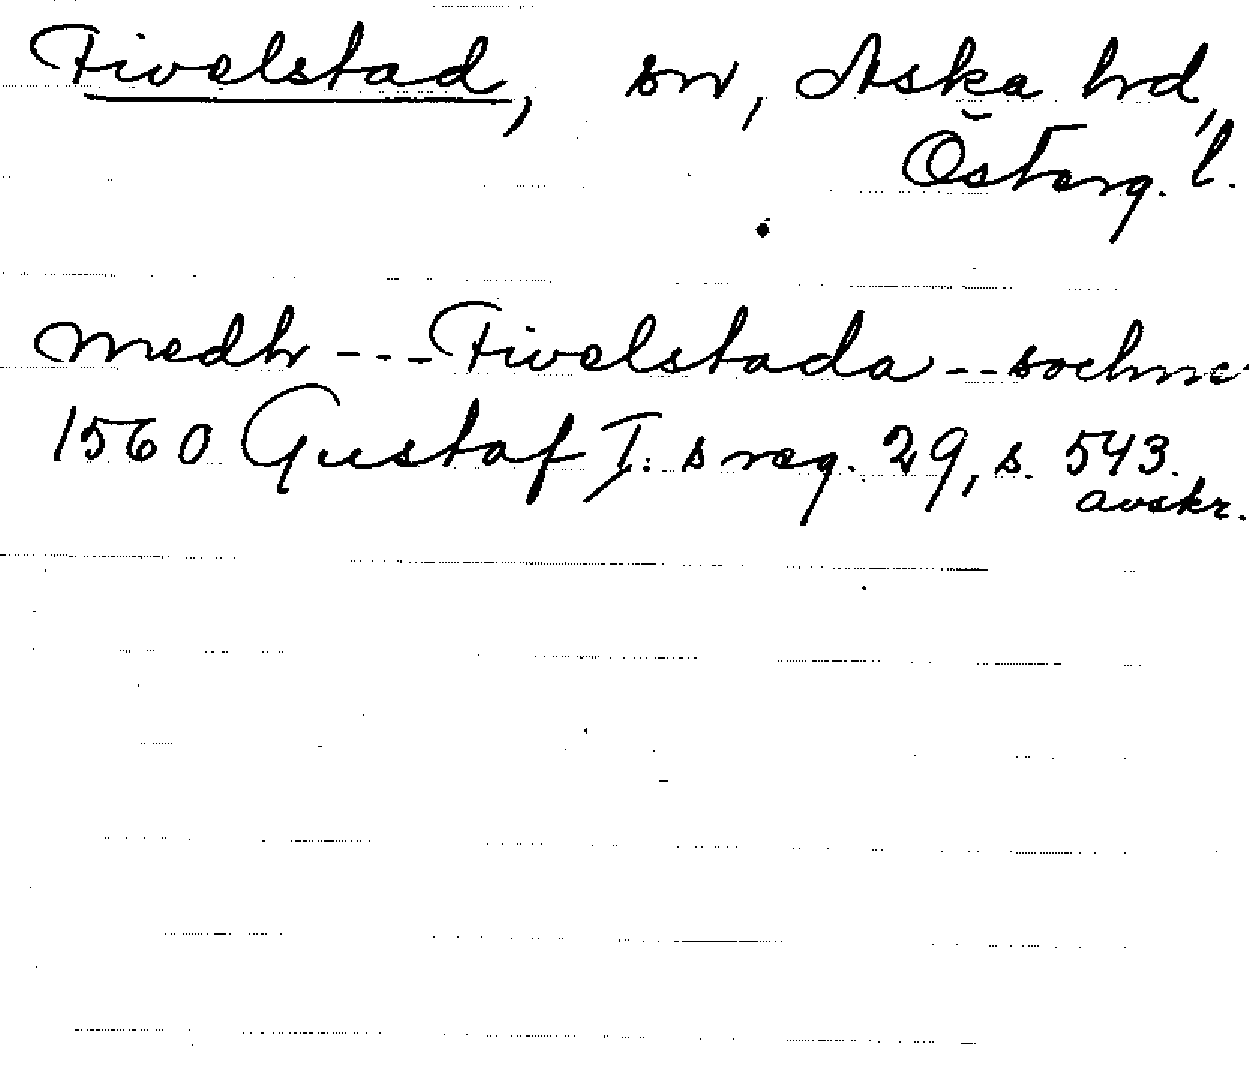 Fivelstad, sn, Aska hd,
Österg. l.
medh --- Fivelstada -- sochne
1560 Gustaf I:s reg. 29, s. 543.
avskr.